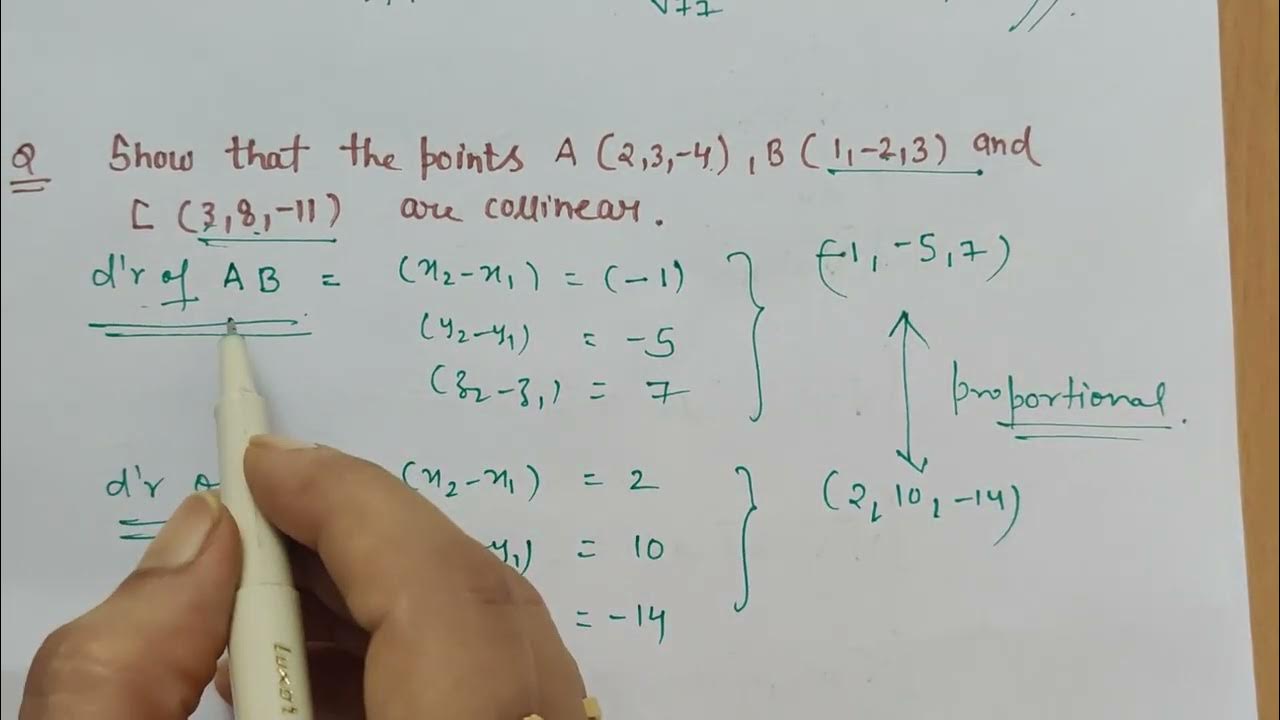 √77
Q Show that the points A (2,3,-4), B (1,-2,3) and
C (3,8,-11) are collinear.
d'r of AB = (x₂-x₁) = (-1)
(-1, -5, 7)
(y₂-y₁) = -5
(z₂-z₁) = 7
proportional.
d'r (x₂-x₁) = 2
(2, 10, -14)
y₁) = 10
= -14
Luxor